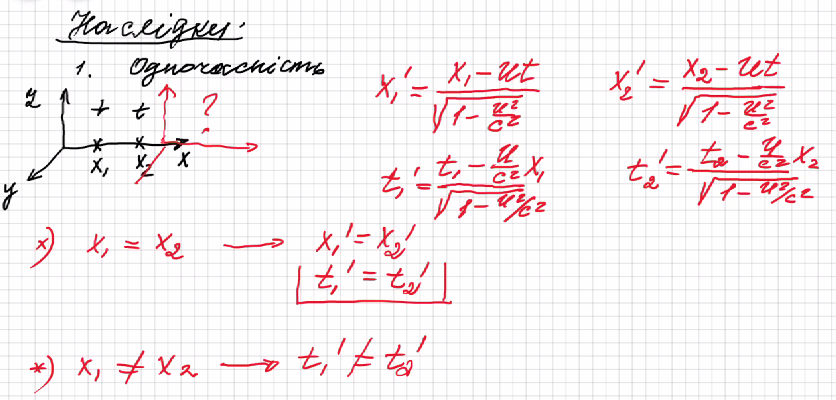 Наслідки:
1. Одночасність
z t t ?
x₁ x₂ x
y
x₁' = (x₁ - ut) / √(1 - u²/c²)
x₂' = (x₂ - ut) / √(1 - u²/c²)
t₁' = (t₁ - u/c² x₁) / √(1 - u²/c²)
t₂' = (t₂ - u/c² x₂) / √(1 - u²/c²)
*) x₁ = x₂ → x₁' = x₂'
t₁' = t₂'
*) x₁ ≠ x₂ → t₁' ≠ t₂'